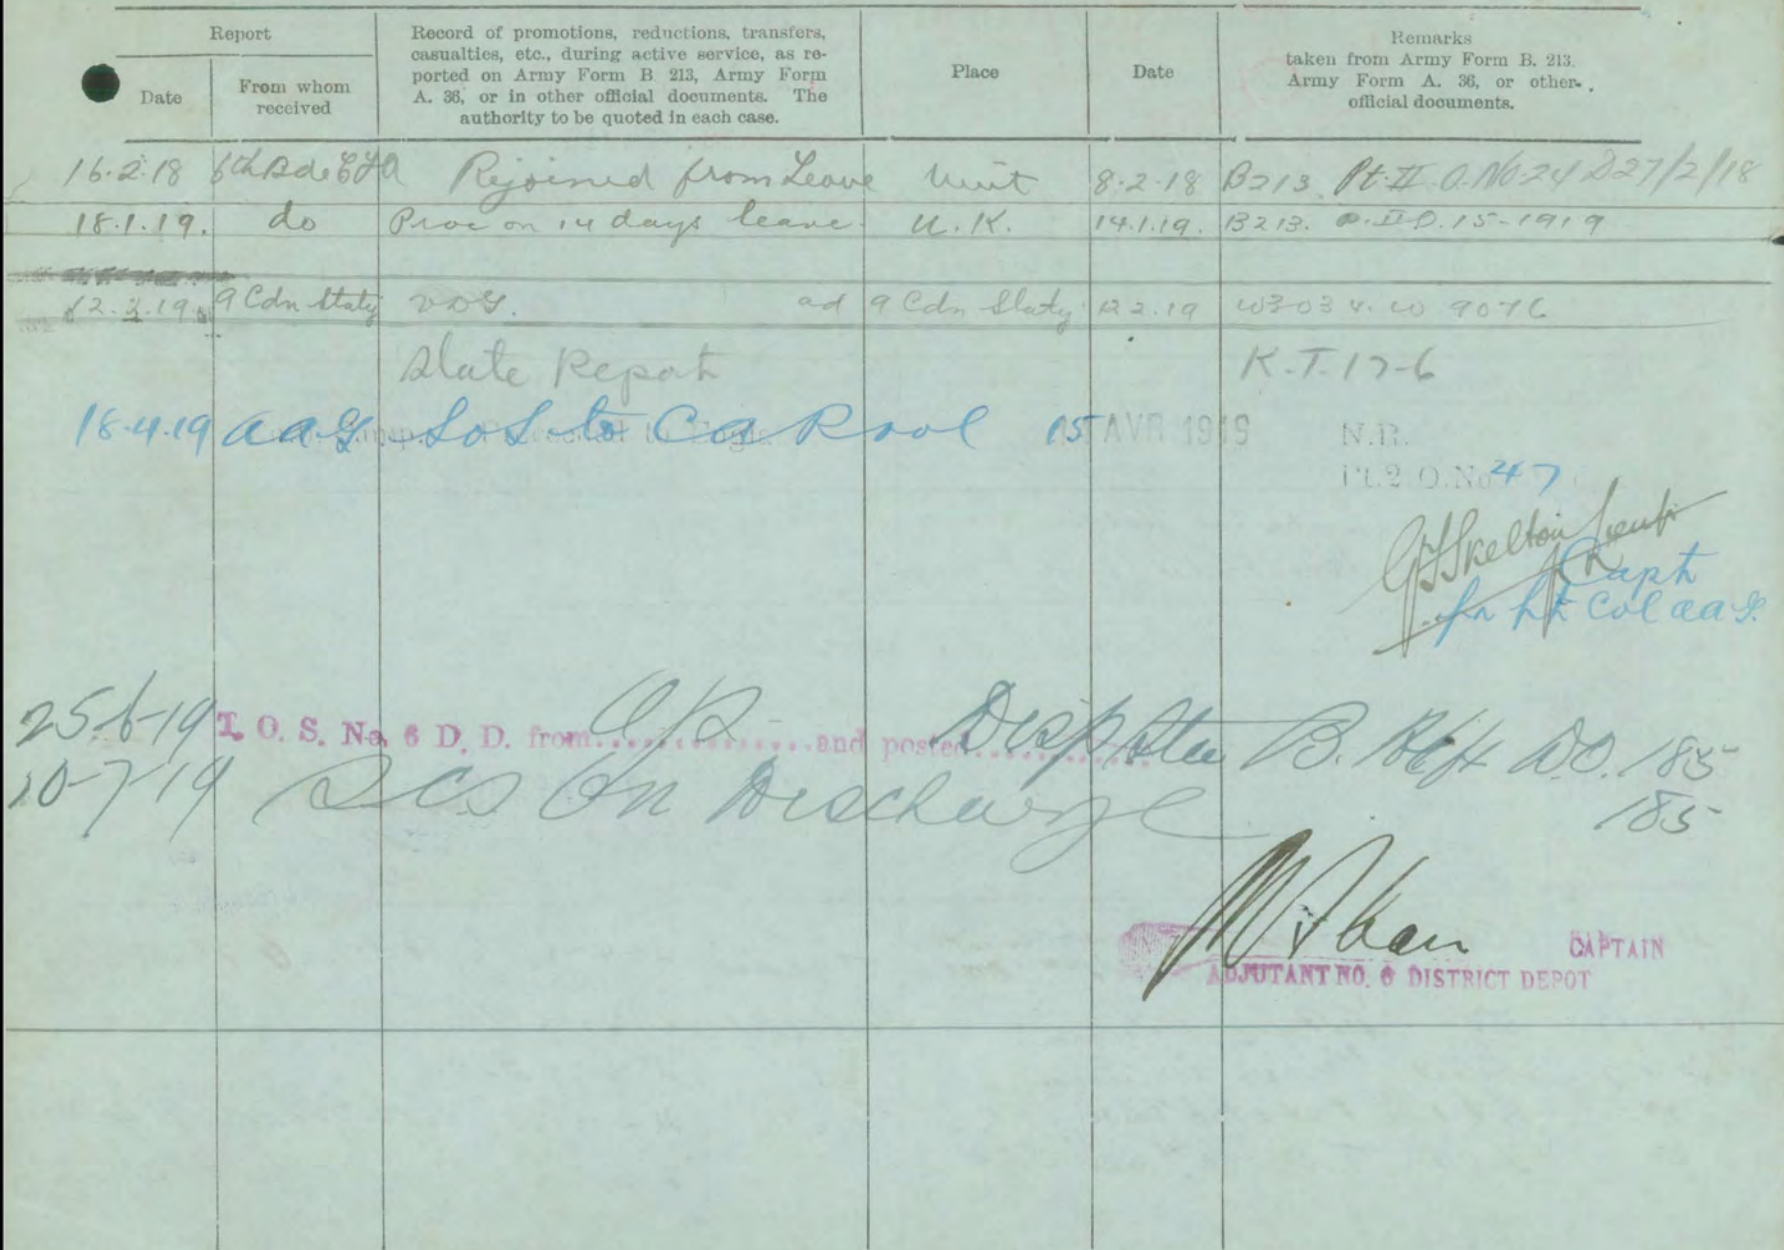 Report
Record of promotions, reductions, transfers,
casualties, etc., during active service, as re-
ported on Army Form B 213, Army Form
A. 36, or in other official documents. The
authority to be quoted in each case.
Place
Date
Remarks
taken from Army Form B. 213,
Army Form A. 36, or other
official documents.
Date
From whom
received
16.2.18 6th Bde CFA Rejoined from Leave Unit 8.2.18 B213 Pt. II. O. No 24 D 27/2/18
18.1.19. do Proc on 14 days leave U.K. 14.1.19. B213. P. II O. 15-1919
12.3.19 9 Cdn Staty VDG. ad 9 Cdn Staty 12.2.19 W3034. W 9076
Late Report K.T. 17-6
18.4.19 AAG SOS to C Pool 15 AVR 1919 N.R.
Pt.2 O.No 47
G Skelton Lieut
Capt
for Lt Col AAG.
25-6-19 T. O. S. No. 6 D. D. from O/S and posted Disp Stn B. Hfx DO. 185
10-7-19 SOS On Discharge 185
CAPTAIN
ADJUTANT NO. 6 DISTRICT DEPOT